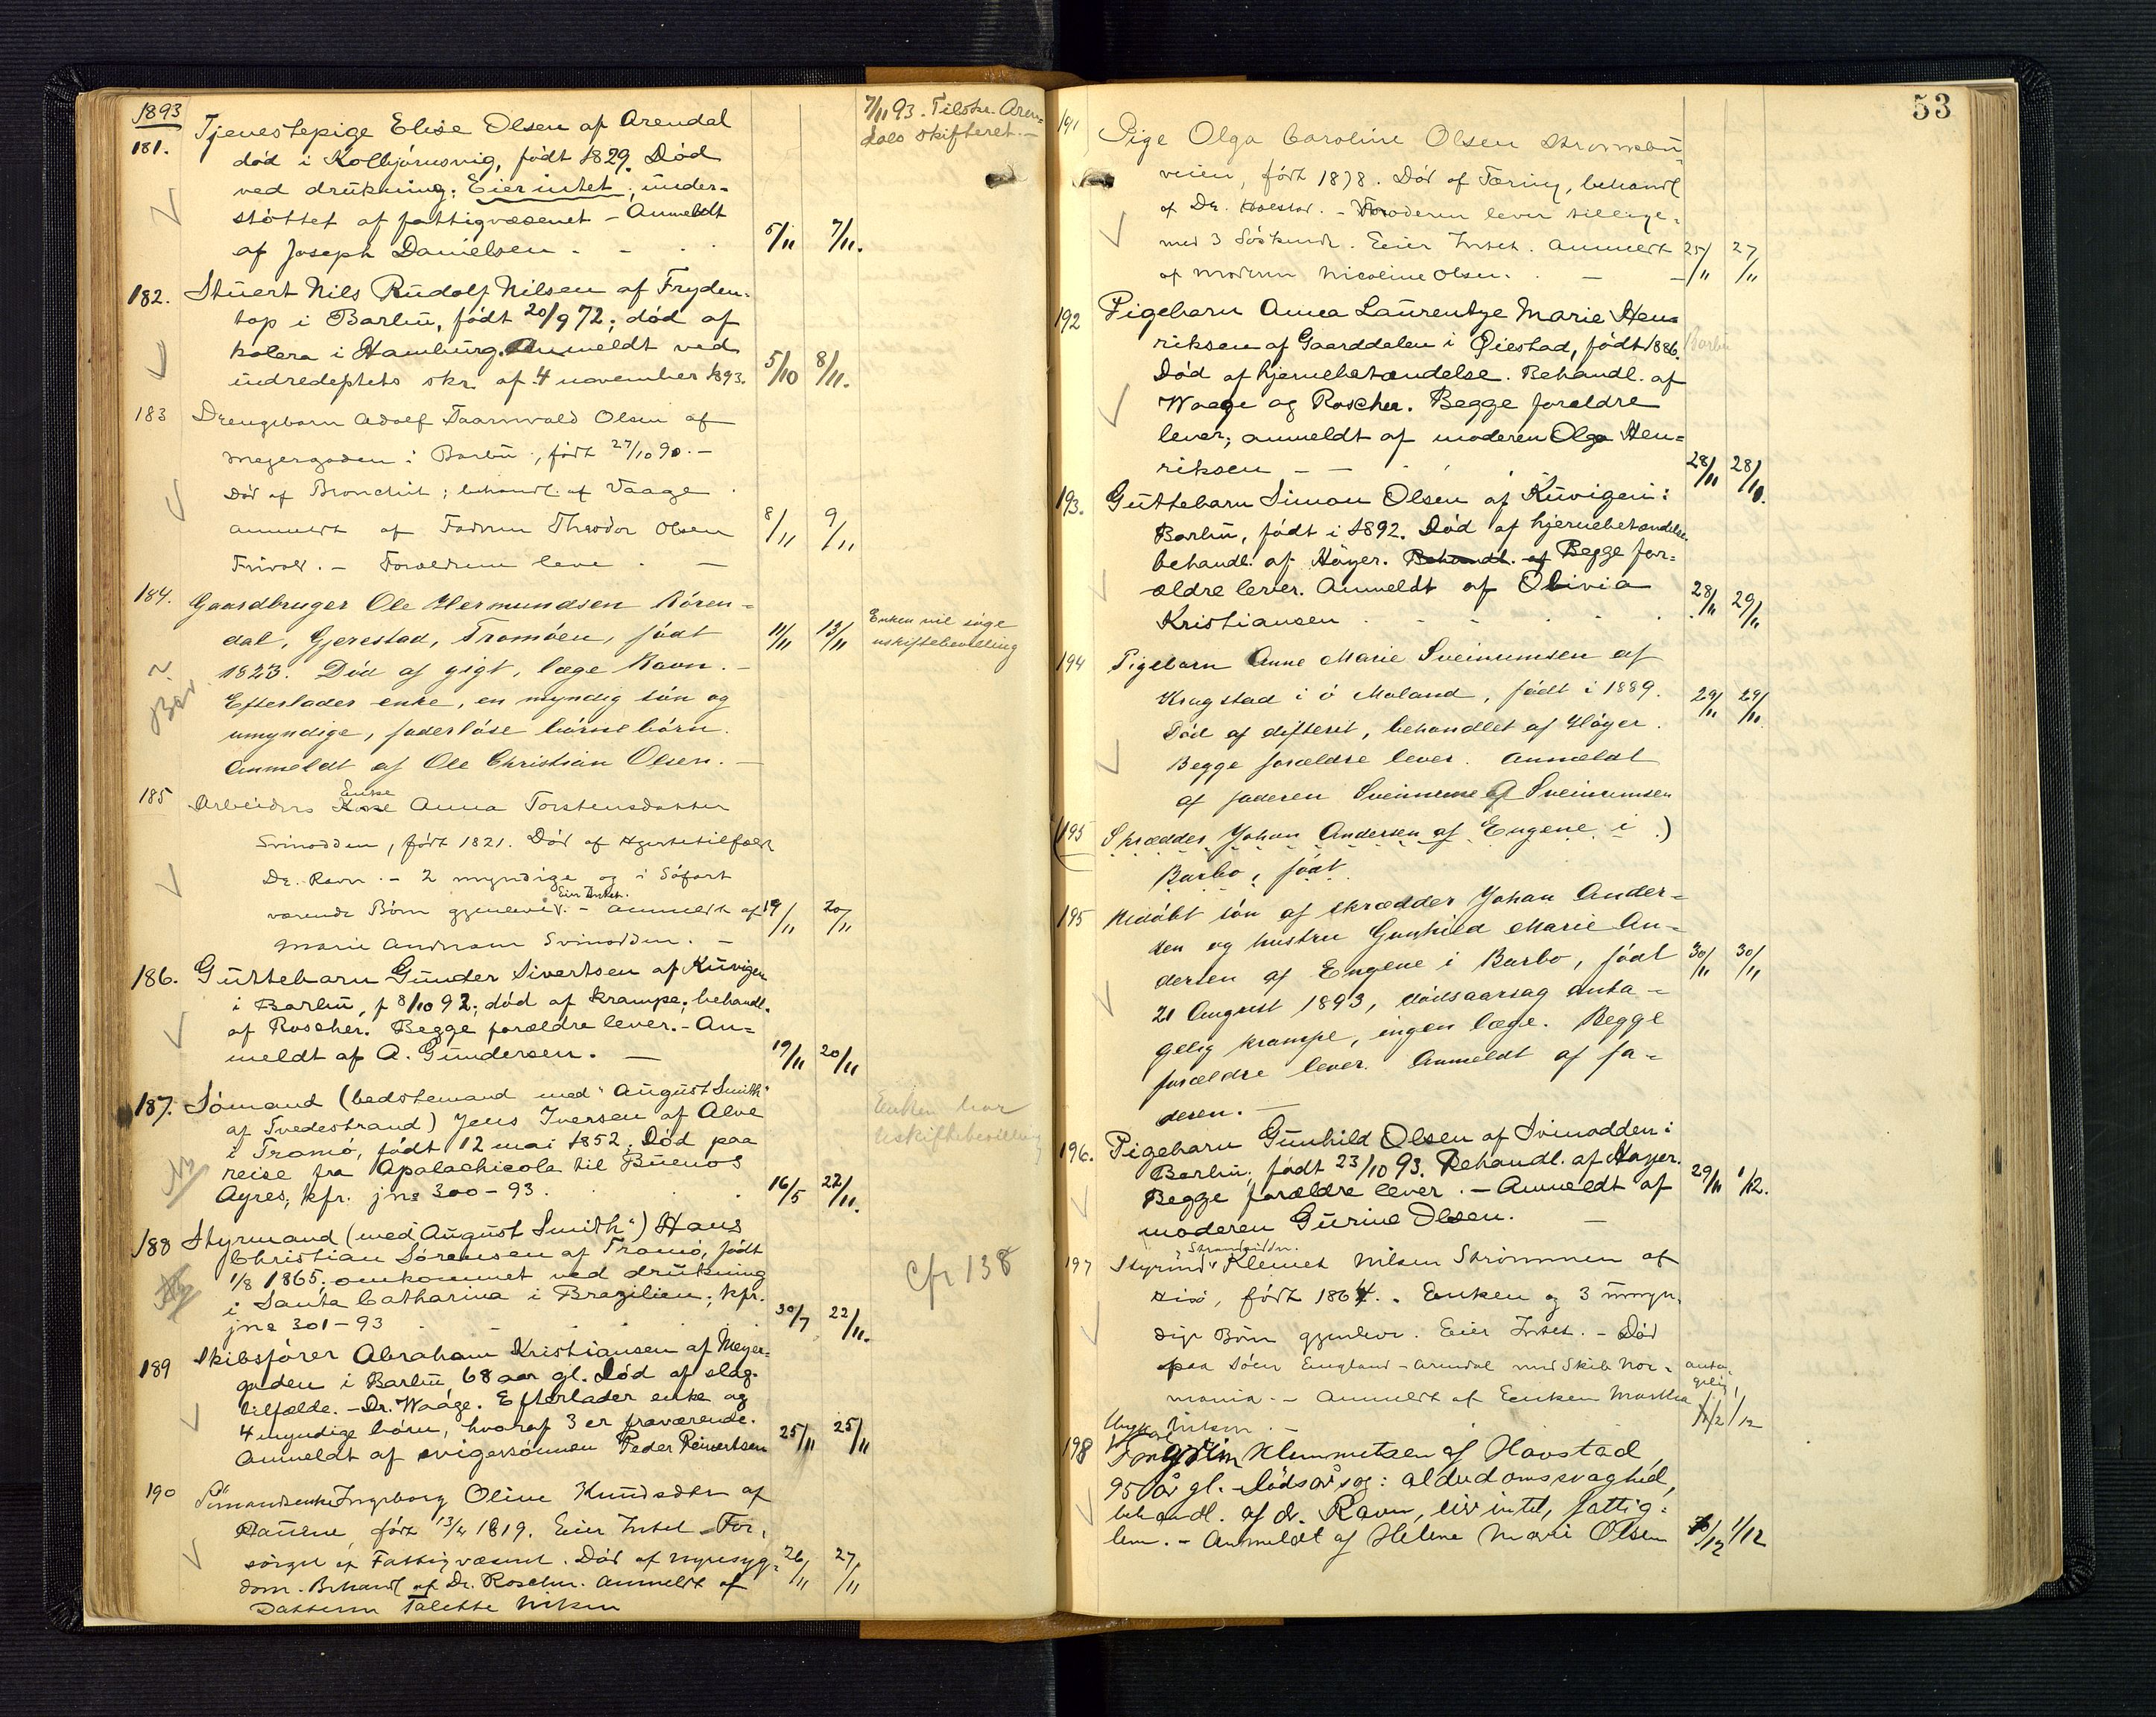 1893
181. Tjenestepige Elise Olsen af Arendal
død i Kolbjørnsvig, født 1829. Død
ved drukning. Eier intet; under-
støttet af fattigvæsenet - Anmeldt
af Joseph Danielsen - - 5/11 7/11.
7/11 93. Tilskr. Aren-
dals skifteret. -
182. Stuert Nils Rudolf Nilsen af Fryden-
top i Barbu, født 20/9 72; død af
kolera i Hamburg. Anmeldt ved
indredeptets skr. af 4 november 1893. 5/10 8/11.
183 Drengebarn Adolf Taarnvald Olsen af
Mejergaden i Barbu, født 27/10 90. -
Død af Bronchit; behandl. af Vaage.
anmeldt af Faderen Theodor Olsen 8/11 9/11
Frivold. - Forældrene leve. -
184. Gaardbruger Ole Hermundsen Røren-
dal, Gjerestad, Tromøen, født 11/11 13/11
1823. Død af gigt, læge Ravn. -
Efterlader enke, en myndig søn og
umyndige, faderløse børnebørn.
Anmeldt af Ole Christian Olsen. -
Enken vil søge
uskiftebevilling
185 Arbeiders Enke Anna Torstensdatter
Svinodden, født 1821. Død af Hjertetilfælde
Dr. Ravn. - 2 myndige og i Søfart
Eier Intet.
værende Børn gjenlever. - Anmeldt af 19/11 20/11
Marie Andersen Svinodden. -
186. Guttebarn Gunder Sivertsen af Kuvigen
i Barbu, f 8/10 92; død af krampe; behandl.
af Roscher. Begge forældre lever. - An-
meldt af A. Gundersen. - 19/11 20/11
187. Sømand (bedstemand med "August Smith"
af Tvedestrand) Jens Iversen af Alve
i Tromø, født 12 mai 1852. Død paa
reise fra Apalachicola til Buenos
Ayres; kfr. jne 300-93. 16/5 22/11.
Enken har
Uskiftebevilling
188 Styrmand (med "August Smith") Hans
Christian Sørensen af Tromø, født
1/8 1865; omkommet ved drukning
i Santa Catharina i Brazilien; kfr.
jne 301-93 30/7 22/11.
Cfr 138
189 Skibsfører Abraham Kristiansen af Meyer-
gaden i Barbu 68 aar gl. Død af slag-
tilfælde. - Dr. Waage. Efterlader enke og
4 myndige børn, hvoraf 3 er fraværende.
Anmeldt af svigersønnen Peder Reinertsen 25/11 25/11
190 Sømandsenke Ingeborg Oline Knudsdtr af
født 13/4 1819. Eier Intet. For-
sørget af Fattigvæsenet. Død af nyresyg- 26/11 27/11
dom. Behandl af Dr. Roscher. Anmeldt af
Datteren Talette Nilsen
53
191 Pige Olga Caroline Olsen Strømsbu
veien, født 1878. Død af Tæring, behandl
af Dr. - Forældrene lever tillige-
med 3 Søskende. Eier Intet. Anmeldt 25/11 27/11
af Moderen Nicoline Olsen. -
192 Pigebarn Anna Laurentze Marie Hen-
riksen af Gaarddalen i Øiestad, født 1886. Barbu
Død af hjernebetændelse. Behandl. af
Waage og Roscher. Begge forældre
lever; anmeldt af moderen Olga Hen-
riksen - - 28/11 28/11.
193. Guttebarn Simon Olsen af Kuvigen i
Barbu, født i 1892. Død af hjernebetændelse
behandl. af Høyer. Behandl. af Begge for-
ældre lever. Anmeldt af Olivia 28/11 29/11
Kristiansen
194 Pigebarn Anne Marie Sveinumsen af
Krugstad i ø Moland, født i 1889. 29/11 29/11.
Død af difterit, behandlet af Høyer.
Begge forældre lever. Anmeldt
af faderen Sveinume G Sveinumsen
(195 Skrædder Johan Andersen af Engene i )
Barbo, født.
195 Nedøbt søn af skrædder Johan Ander-
sen og hustru Gunhild Marie An-
dersen af Engene i Barbo, født 30/11 30/11
21 August 1893, dødsaarsag anta-
gelig krampe, ingen læge. Begge
forældre lever. Anmeldt af fa-
deren. -
196. Pigebarn Gunhild Olsen af Svinodden i
Barbu, født 23/10 93. Behandl. af Høyer.
Begge forældre lever. - Anmeldt af 29/11 1/12.
moderen Gurine Olsen. -
197 Styrmd Klemet Nilsen Strømmen af
Hisø, født 1864. . Enken og 3 umyn-
dige Børn gjenlever. Eier Intet. - Død
paa Søen England - Arendal med Skib Nor- anta-
mania. - Anmeldt af Enken Martha gelig
Nilsen. - 1/12
198 Klemmetsen af Havstad,
95 år gl. Dødsårsag: alderdomssvaghed,
behandl. af dr. Ravn, eier intet, fattig-
lem. - Anmeldt af Helene Marie Olsen 1/12